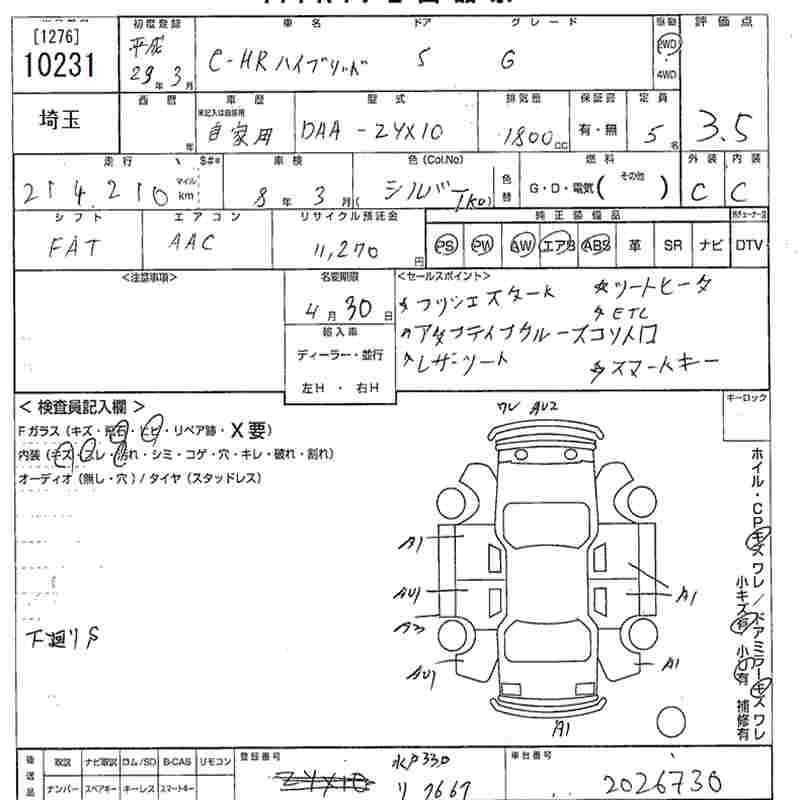 [1276]
10231
埼玉
初度登録 車名 ドア グレード 駆動 評価点
平成 29年3月 C-HR ハイブリッド 5 G 2WD 4WD 3.5
西暦 車歴 型式 排気量 保証書 定員
年 未記入は自家用 自家用 DAA-ZYX10 1800cc 有・無 5名
走行 $#* 車検 色(Col.No) 燃料 外装 内装
214,210 マイル km 8年3月 シルバー(1K0) 色替 G・D・電気(その他) C C
シフト エアコン リサイクル預託金 純正装備品
FAT AAC 11,270円 PS PW AW エアB ABS 革 SR ナビ DTV
<注意事項> 名変期限 <セールスポイント>
4月30日 プッシュスタート シートヒータ
ETC
輸入車 アダプティブクルーズコントロ
ディーラー・並行 レザーシート スマートキー
左H・右H
<検査員記入欄> ワレ AU2 キーロック
Fガラス(キズ・飛石・ヒビ・リペア跡・X要)
内装(キズ・スレ・汚れ・シミ・コゲ・穴・キレ・破れ・割れ)
オーディオ(無し・穴)/タイヤ(スタッドレス)
ホイル・CPキズワレ/ドアミラーキズワレ
小キズ有 小凹有 補修有
A1
AU1 A1
下廻りS
AU1 A1
A1
後送品 取説 ナビ取説 ロム/SD B-CAS リモコン 登録番号 水戸330 車台番号
ナンバー スペアキー キーレス スマートキー ZYX10 り7667 2026730